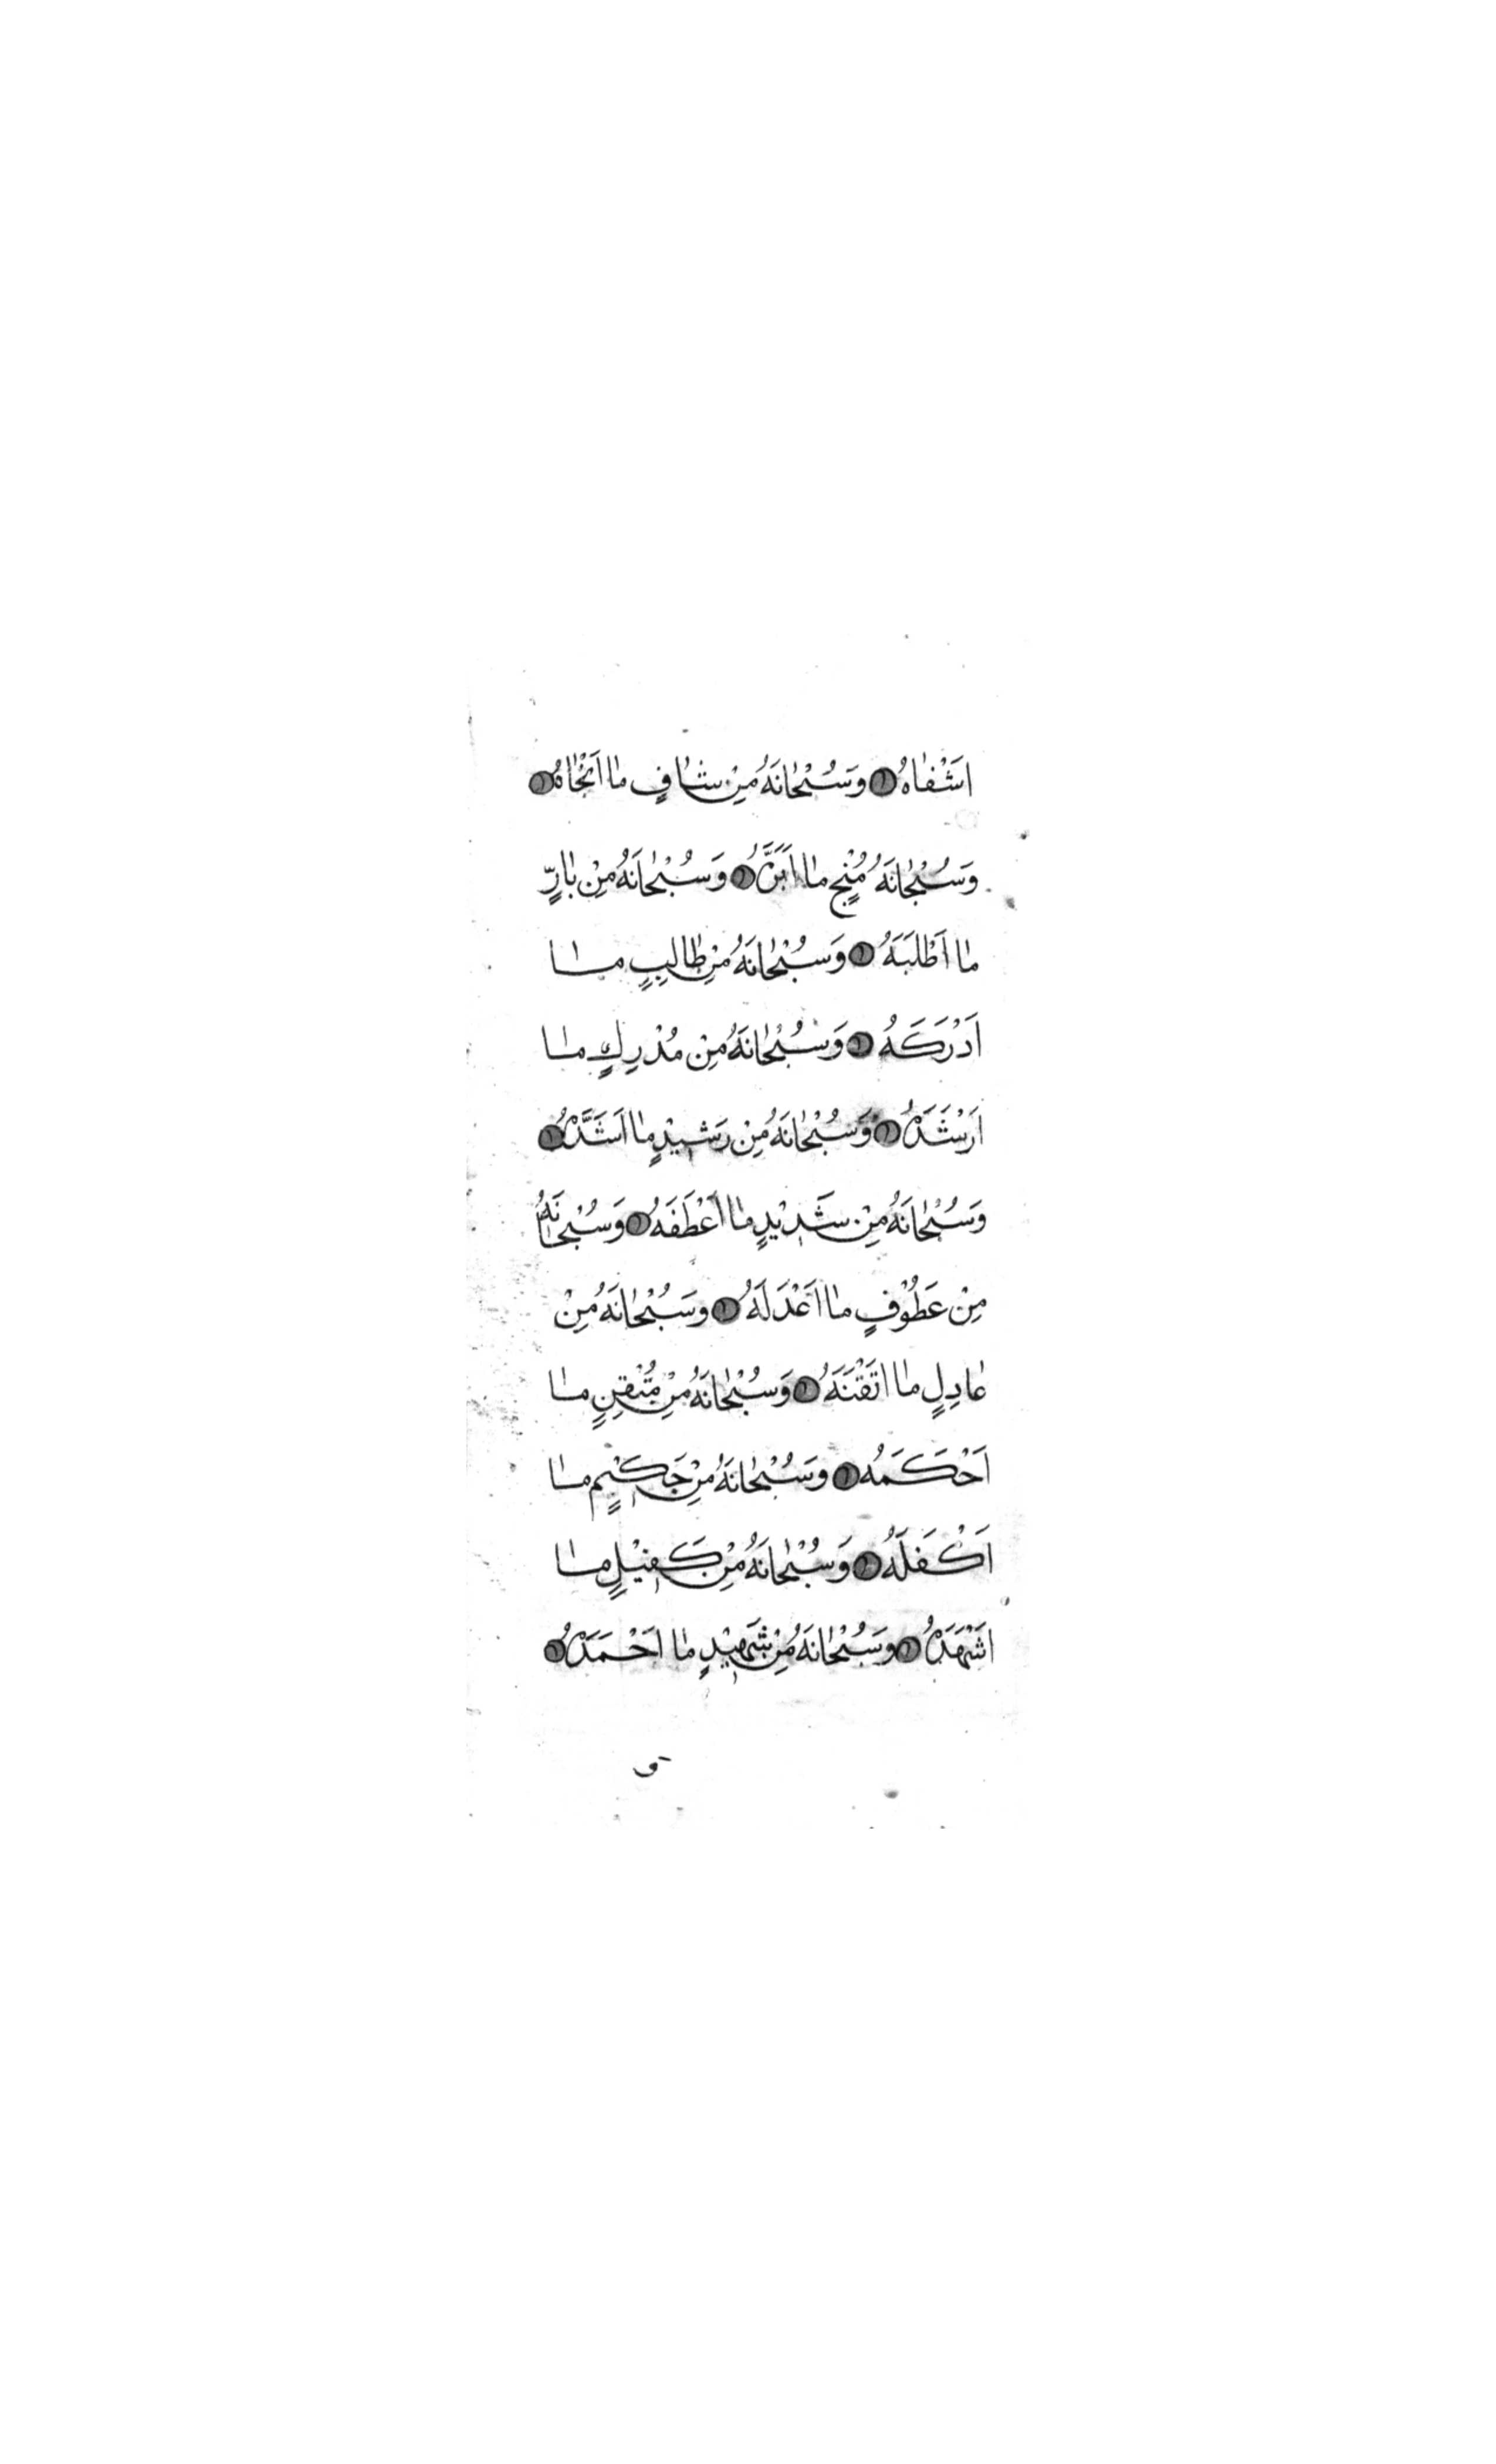 اَشْفٰاهُ ۝ وَسُبْحٰانَهُ مِنْ شٰافٍ مٰا اَنْجٰاهُ ۝
وَسُبْحٰانَهُ مُنْجٍ مٰا اَبَرَّهُ ۝ وَسُبْحٰانَهُ مِنْ بٰارٍّ
مٰا اَطْلَبَهُ ۝ وَسُبْحٰانَهُ مِنْ طٰالِبٍ مٰا
اَدْرَكَهُ ۝ وَسُبْحٰانَهُ مِنْ مُدْرِكٍ مٰا
اَرْشَدَهُ ۝ وَسُبْحٰانَهُ مِنْ رَشِيْدٍ مٰا اَشَدَّهُ ۝
وَسُبْحٰانَهُ مِنْ شَدِيْدٍ مٰا اَعْطَفَهُ ۝ وَسُبْحٰانَهُ
مِنْ عَطُوْفٍ مٰا اَعْدَلَهُ ۝ وَسُبْحٰانَهُ مِنْ
عٰادِلٍ مٰا اَتْقَنَهُ ۝ وَسُبْحٰانَهُ مِنْ مُتْقِنٍ مٰا
اَحْكَمَهُ ۝ وَسُبْحٰانَهُ مِنْ حَكِيْمٍ مٰا
اَكْفَلَهُ ۝ وَسُبْحٰانَهُ مِنْ كَفِيْلٍ مٰا
اَشْهَدَهُ ۝ وَسُبْحٰانَهُ مِنْ شَهِيْدٍ مٰا اَحْمَدَهُ ۝
و